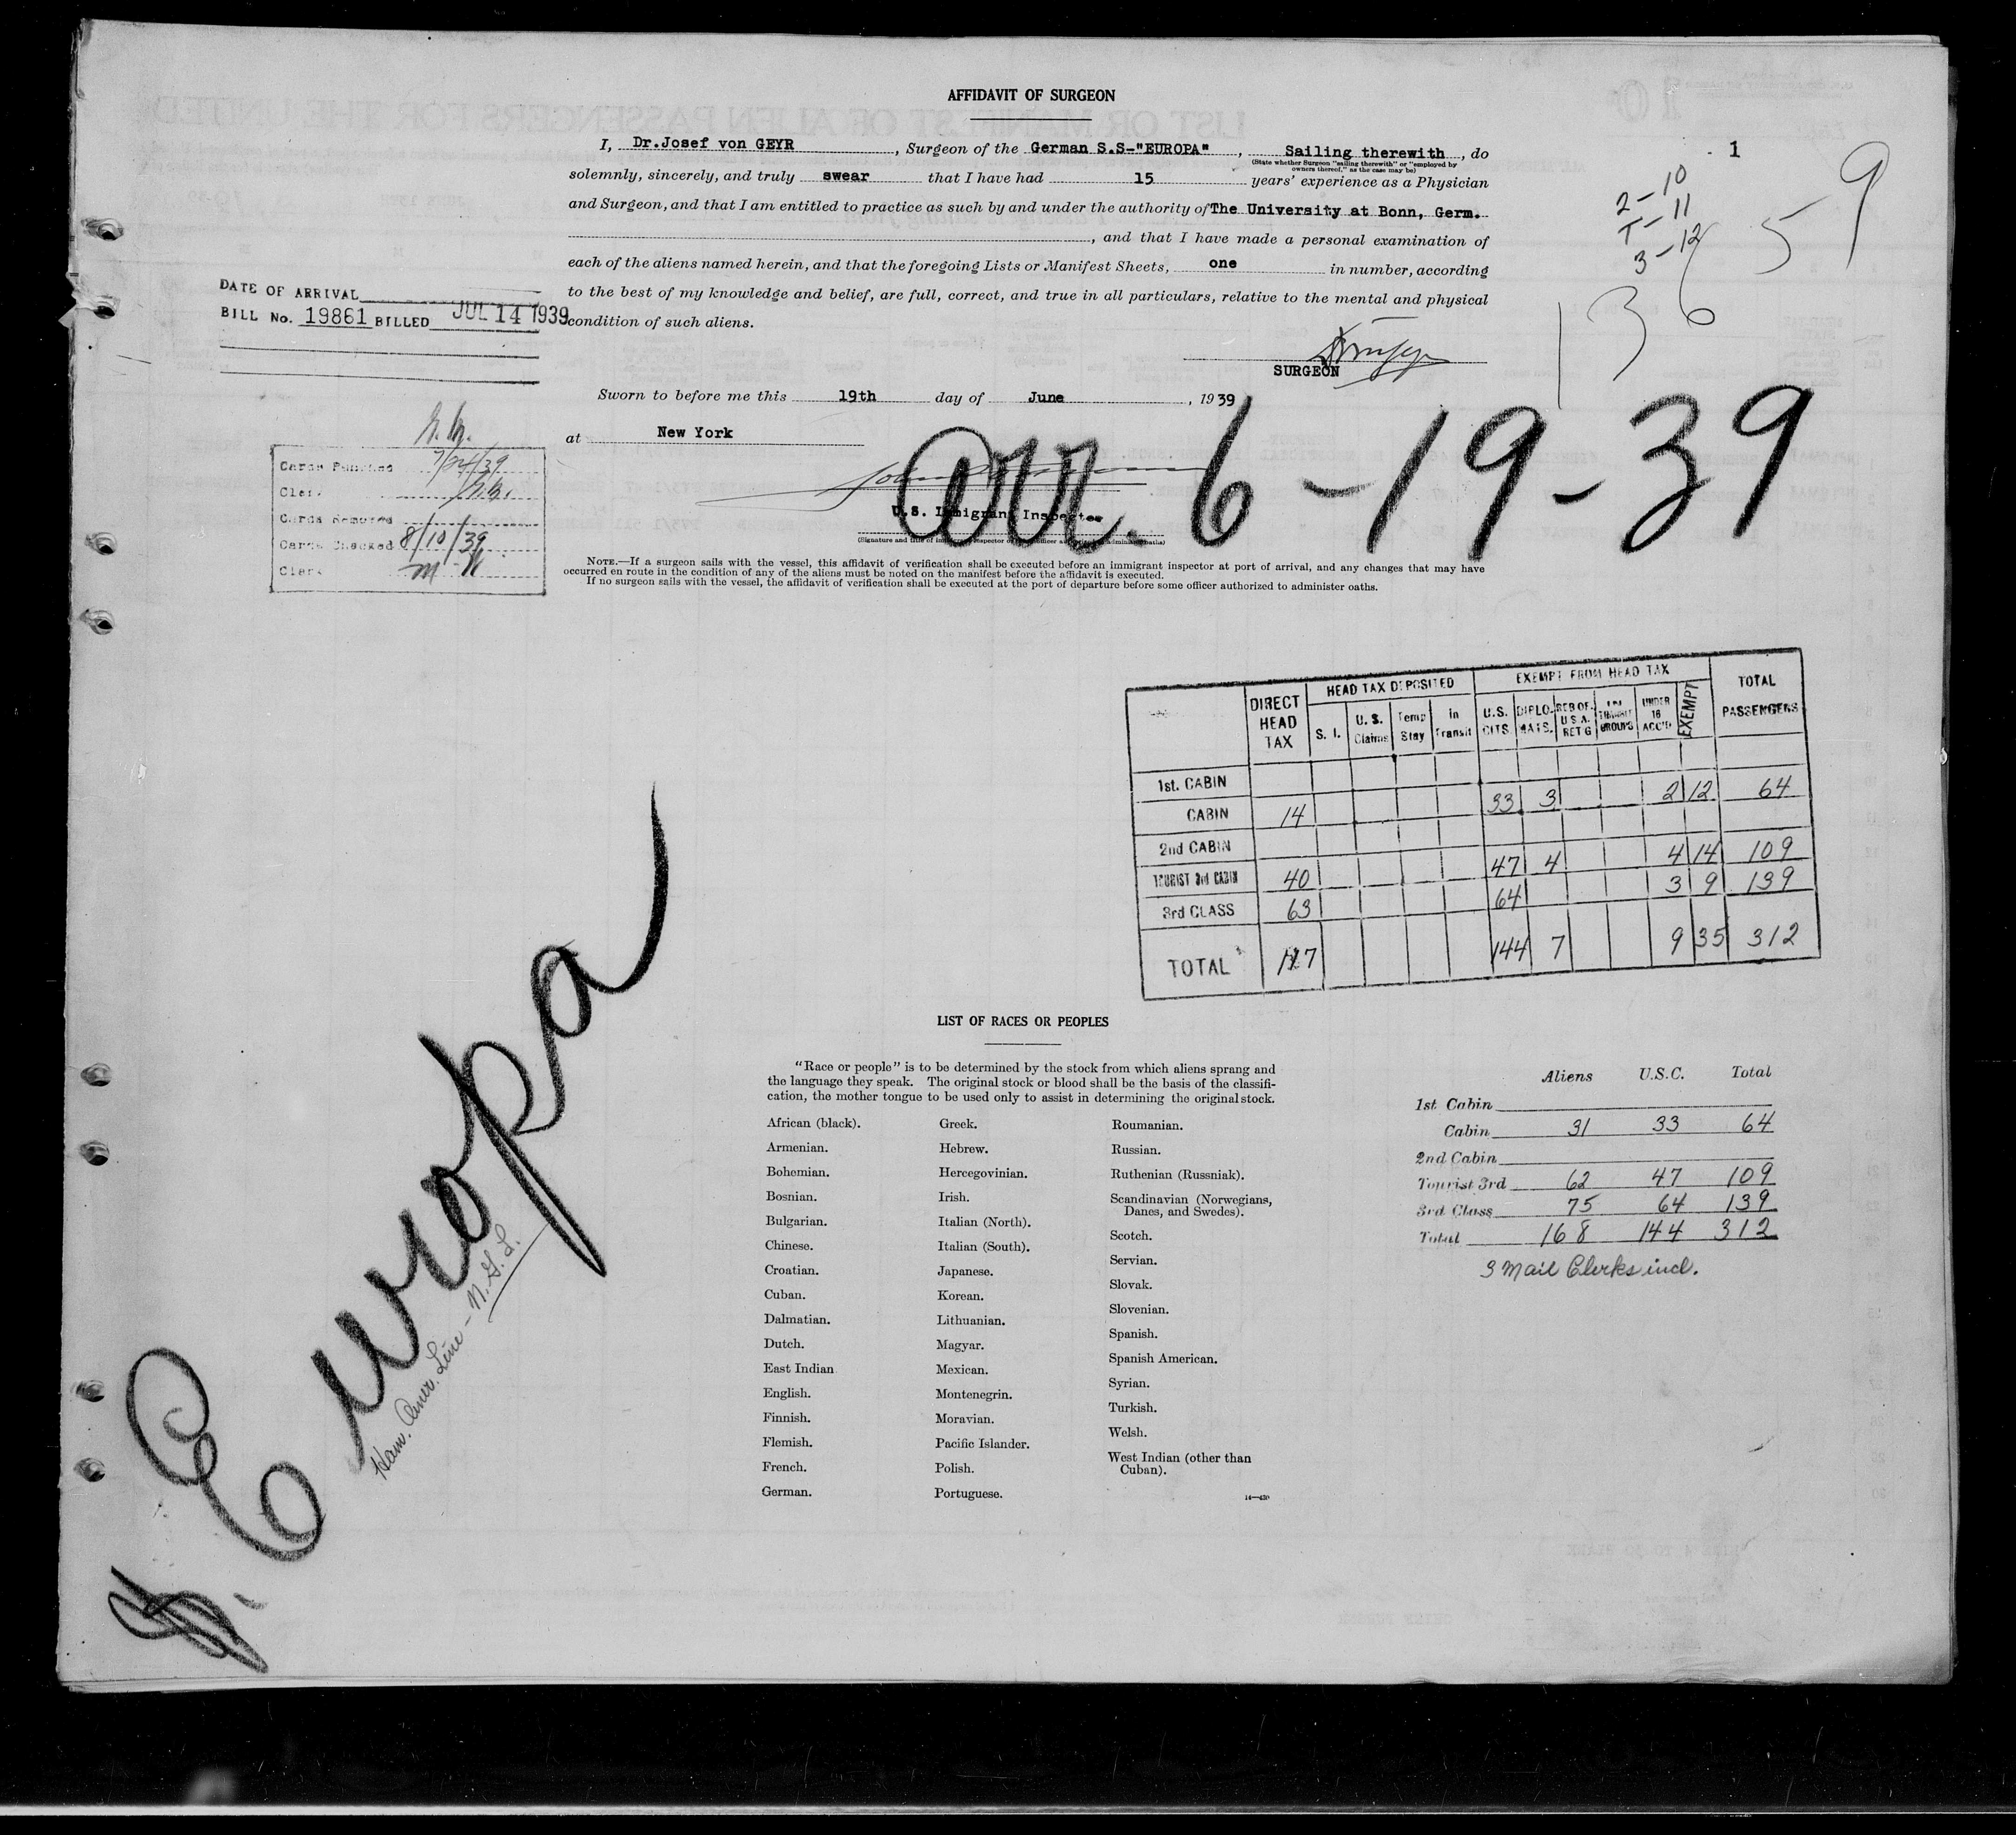 AFFIDAVIT OF SURGEON
I, Dr.Josef von GEYR, Surgeon of the German S.S-"EUROPA", Sailing therewith, do
(State whether Surgeon "sailing therewith" or "employed by
owners thereof," as the case may be)
solemnly, sincerely, and truly swear that I have had 15 years' experience as a Physician
and Surgeon, and that I am entitled to practice as such by and under the authority of The University at Bonn, Germ.
, and that I have made a personal examination of
each of the aliens named herein, and that the foregoing Lists or Manifest Sheets, one in number, according
to the best of my knowledge and belief, are full, correct, and true in all particulars, relative to the mental and physical
condition of such aliens.
SURGEON
1
2-10
T-11
3-12
1 3 6 5 9
DATE OF ARRIVAL
BILL No. 19861 BILLED JUL 14 1939
Sworn to before me this 19th day of June, 1939
at New York
arr. 6-19-39
U.S. Immigrant Inspector
NOTE.—If a surgeon sails with the vessel, this affidavit of verification shall be executed before an immigrant inspector at port of arrival, and any changes that may have
occurred en route in the condition of any of the aliens must be noted on the manifest before the affidavit is executed.
If no surgeon sails with the vessel, the affidavit of verification shall be executed at the port of departure before some officer authorized to administer oaths.
Cards Punched 7/24/39
Clerk
Cards Removed
Cards Checked 8/10/39
Clerk
DIRECT HEAD TAX
HEAD TAX DEPOSITED
S. I. U. S. Claims Temp Stay In Transit
EXEMPT FROM HEAD TAX
U.S. CITS. DIPLO-MATS. RES OF U S A. RET'G GROUPS UNDER 16 ACC'D EXEMPT
TOTAL PASSENGERS
1st. CABIN
CABIN 14 33 3 2 12 64
2nd CABIN
TOURIST 3rd CABIN 40 47 4 4 14 109
3rd CLASS 63 64 3 9 139
TOTAL 117 144 7 9 35 312
Europa
Ham. Amer. Line - N.G.L.
LIST OF RACES OR PEOPLES
"Race or people" is to be determined by the stock from which aliens sprang and
the language they speak. The original stock or blood shall be the basis of the classifi-
cation, the mother tongue to be used only to assist in determining the original stock.
African (black).
Armenian.
Bohemian.
Bosnian.
Bulgarian.
Chinese.
Croatian.
Cuban.
Dalmatian.
Dutch.
East Indian
English.
Finnish.
Flemish.
French.
German.
Greek.
Hebrew.
Hercegovinian.
Irish.
Italian (North).
Italian (South).
Japanese.
Korean.
Lithuanian.
Magyar.
Mexican.
Montenegrin.
Moravian.
Pacific Islander.
Polish.
Portuguese.
Roumanian.
Russian.
Ruthenian (Russniak).
Scandinavian (Norwegians,
Danes, and Swedes).
Scotch.
Servian.
Slovak.
Slovenian.
Spanish.
Spanish American.
Syrian.
Turkish.
Welsh.
West Indian (other than
Cuban).
Aliens U.S.C. Total
1st Cabin
Cabin 31 33 64
2nd Cabin
Tourist 3rd 62 47 109
3rd Class 75 64 139
Total 168 144 312
3 Mail Clerks incl.